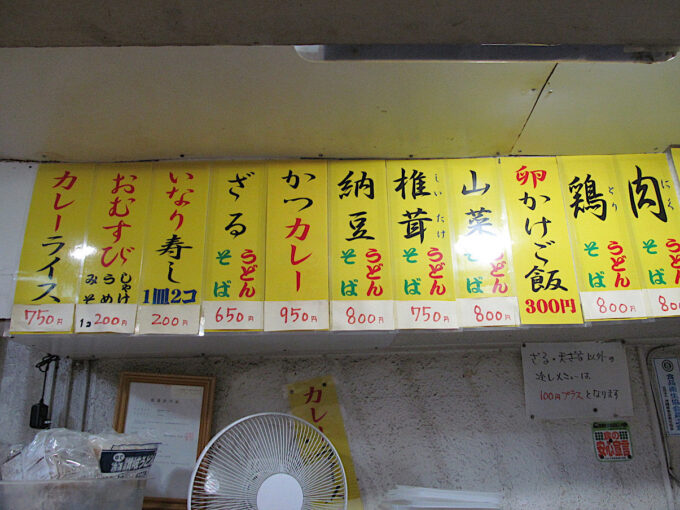 カレーライス
750円
おむすび
しゃけ
うめ
みそ
1コ200円
いなり寿し
1皿2コ
200円
ざる
うどん
そば
650円
かつカレー
950円
納豆
うどん
そば
800円
椎茸
しいたけ
うどん
そば
750円
山菜
うどん
そば
800円
卵かけご飯
300円
鶏
とり
うどん
そば
800円
肉
にく
うどん
そば
ざる・天ざる以外の
冷しメニューは、
100円プラスとなります
カレー
食の
安心宣言